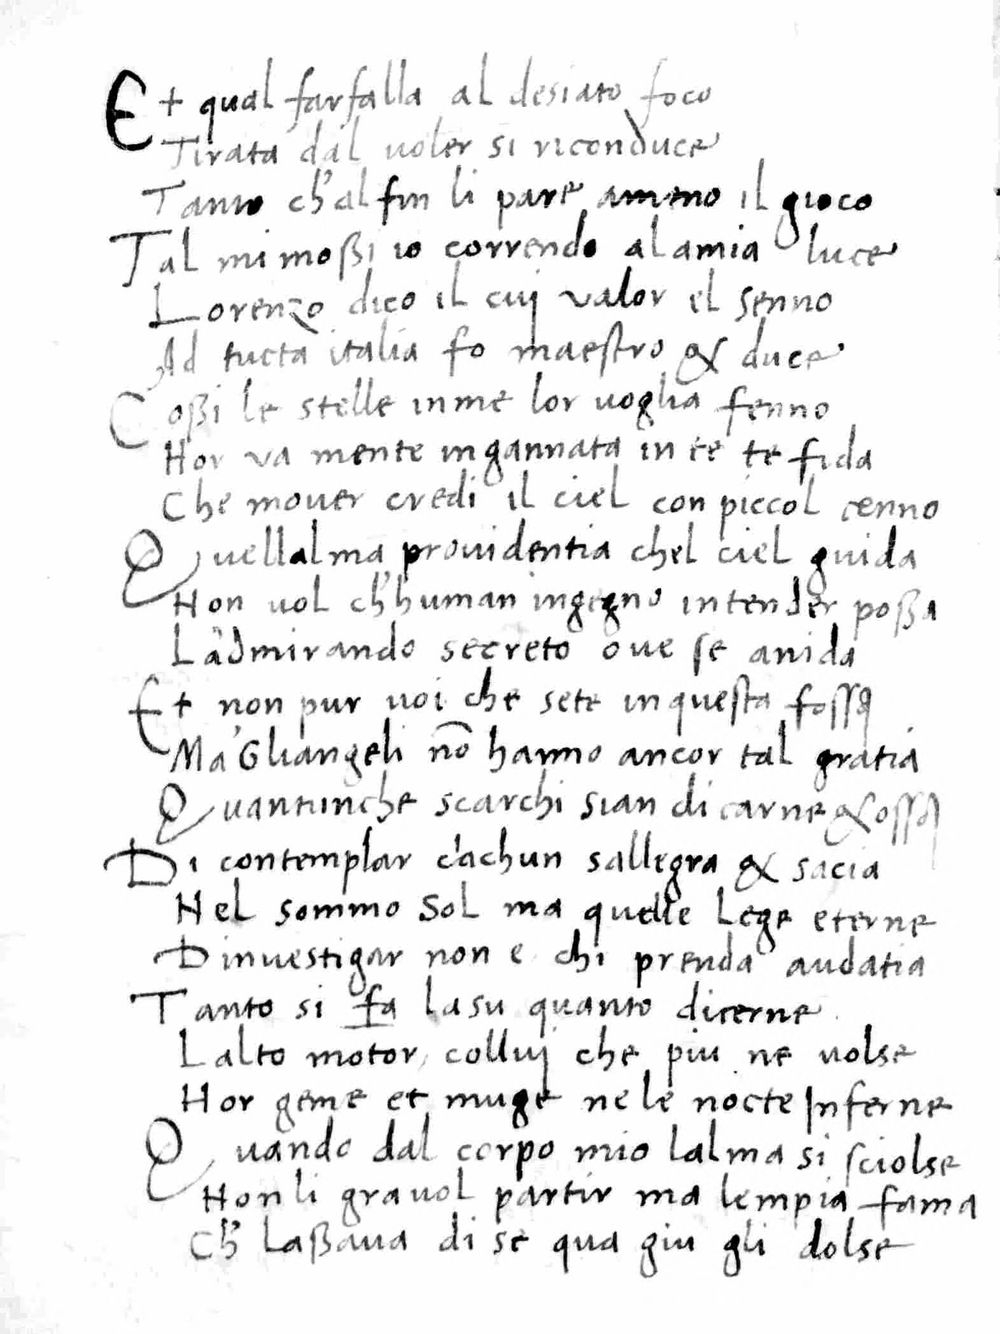 Et qual farfalla al desiato foco
Tirata dal uoler si riconduce
Tanto ch'al fin li pare ameno il gioco
Tal mi moßi io correndo alamia luce
Lorenzo dico il cuj valor el senno
Ad tucta italia fo maestro & duce
Coßi le stelle inme lor uoglia fenno
Hor va mente ingannata in te te fida
Che mouer credi il ciel con piccol cenno
Quellalma prouidentia chel ciel guida
Non uol ch'human ingegno intender poßa
Ladmirando secreto oue se anida
Et non pur uoi che sete inquesta fossa
Ma Gliangeli nō hanno ancor tal gratia
Quantunche scarchi sian di carne & ossa
Di contemplar ciachun sallegra & sacia
Nel sommo Sol ma quelle Lege eterne
Dinuestigar non e chi prenda audatia
Tanto si fa lasu quanto dicerne
Lalto motor, colluj che piu ne uolse
Hor geme et muge nele nocte Inferne
Quando dal corpo mio lalma si sciolse
Non li grauol partir ma lempia fama
Ch' Laßaua di se qua giu gli dolse